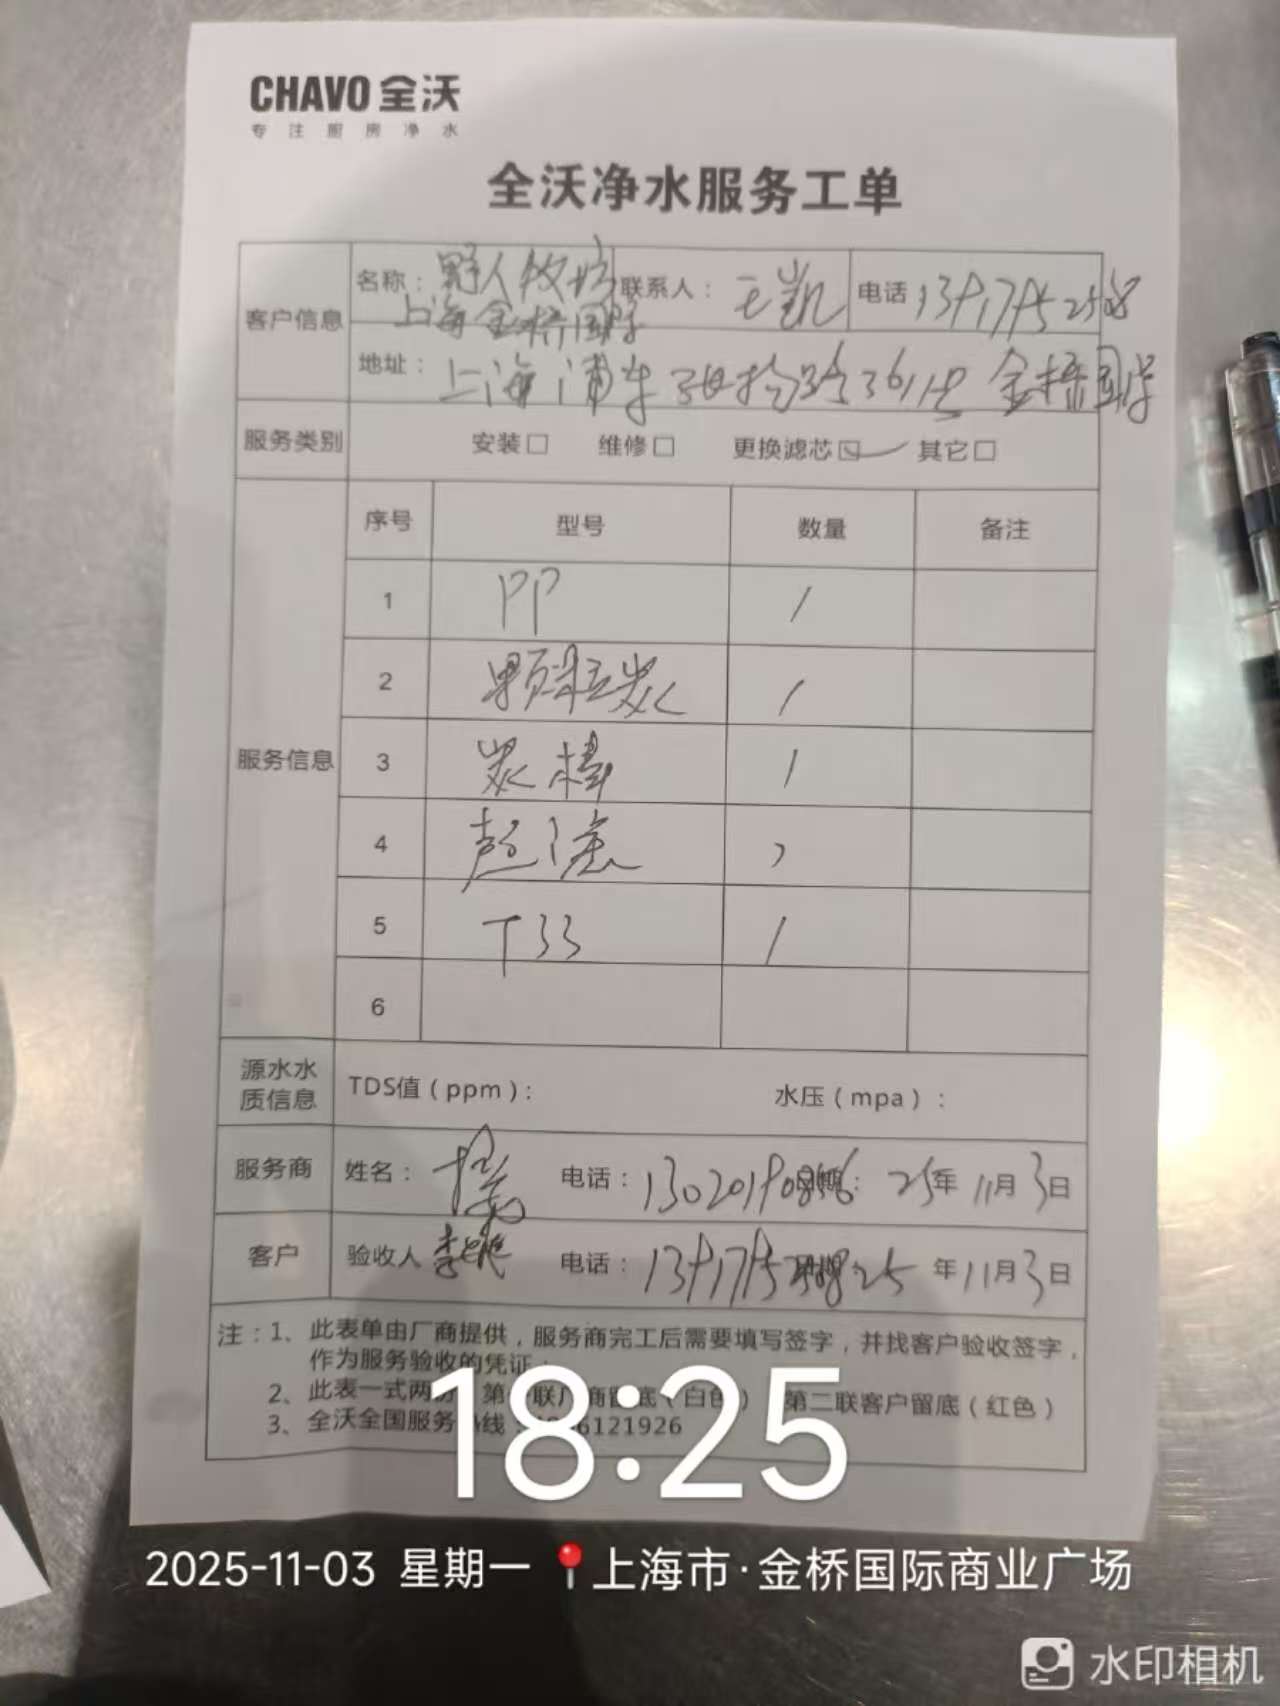 CHAVO 全沃
专注厨房净水
全沃净水服务工单
客户信息 名称：野人牧坊 上海金桥国际 联系人：王凯 电话
地址：上海浦东张杨路3611弄 金桥国际
服务类别 安装□ 维修□ 更换滤芯☑ 其它□
服务信息 序号 型号 数量 备注
1 PP 1
2 颗粒炭 1
3 炭棒 1
4 超滤
5 T33 1
6
源水水质信息 TDS值（ppm）： 水压（mpa）：
服务商 姓名： 电话： 25年 11月 3日
客户 验收人 电话： 25 年 11月 3日
注：1、此表单由厂商提供，服务商完工后需要填写签字，并找客户验收签字，
作为服务验收的凭证；
2、此表一式两份 第一联厂商留底（白色） 第二联客户留底（红色）
3、全沃全国服务热线： 6121926
18:25
2025-11-03 星期一 上海市·金桥国际商业广场
水印相机